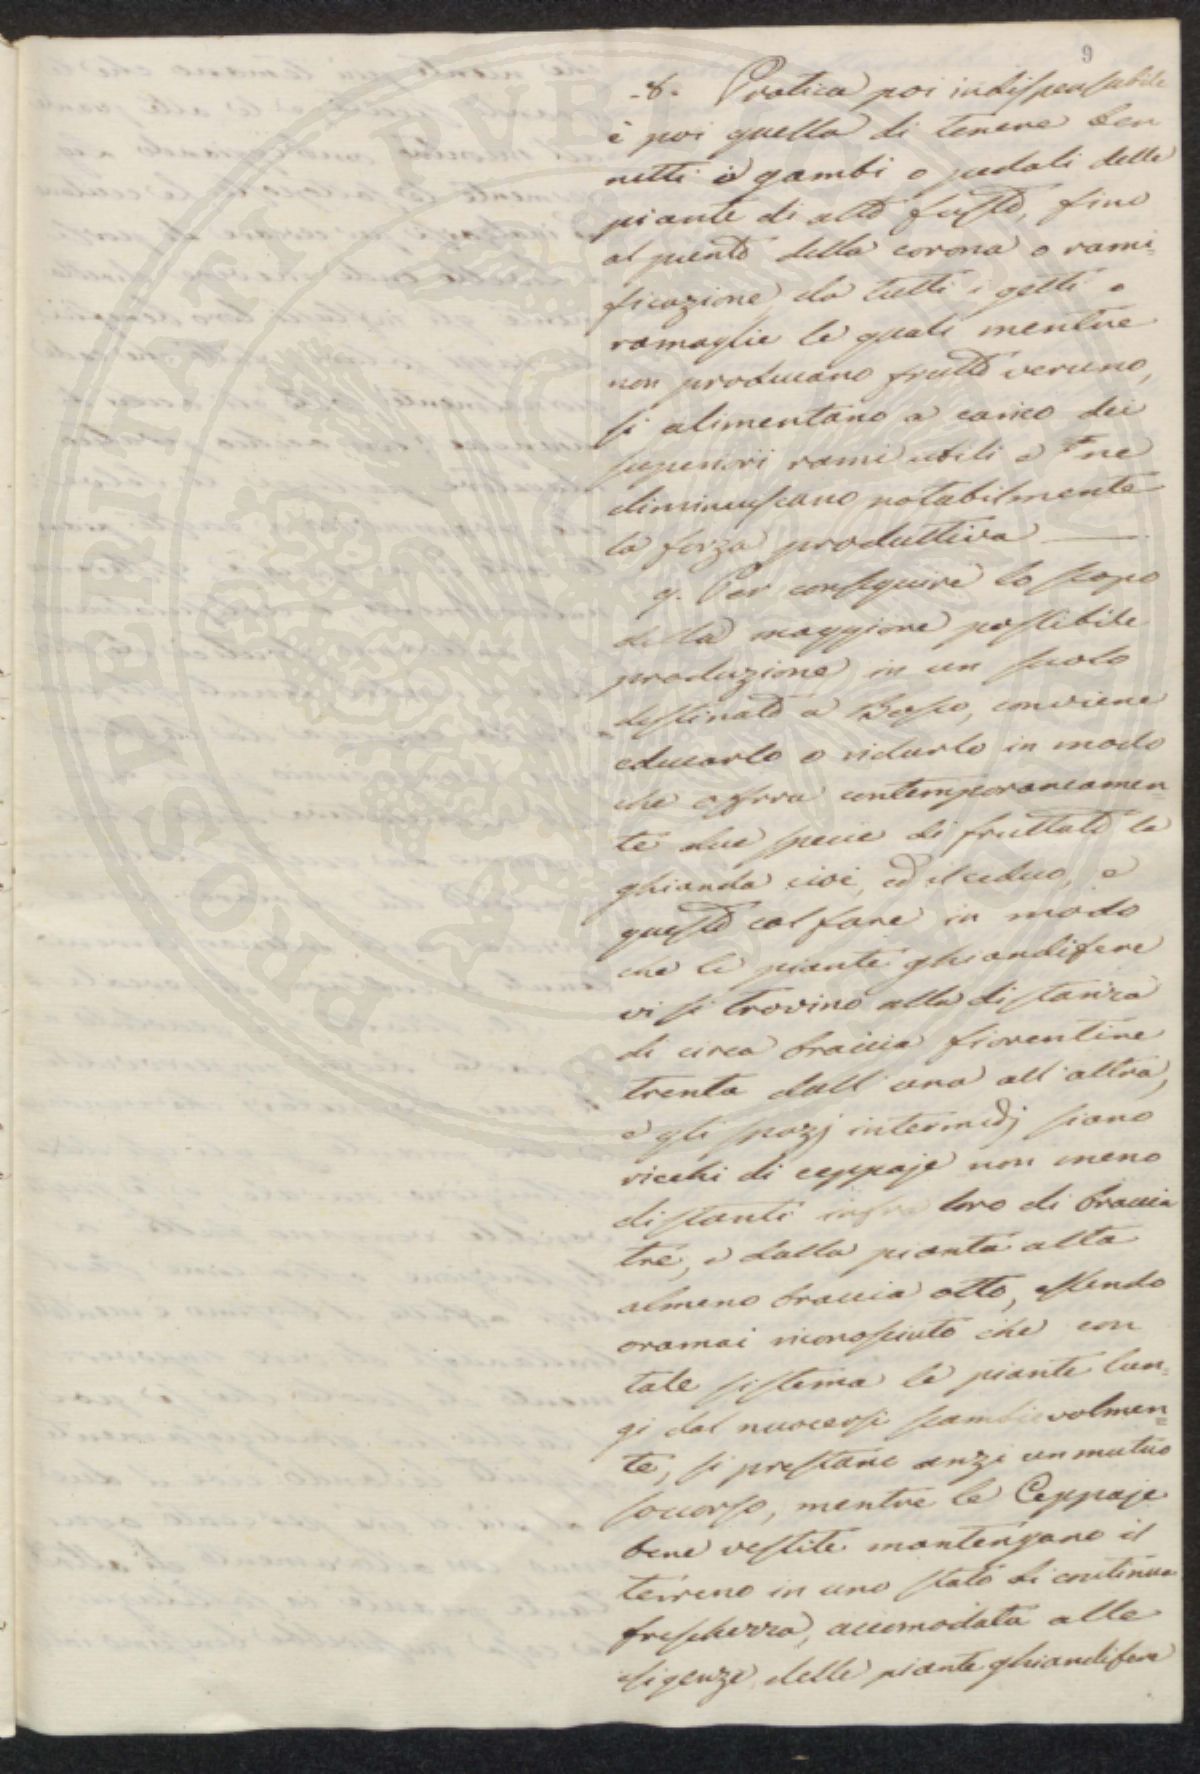 9
-8.- Pratica poi indispensabile
è poi quella di tenere ben
netti i gambi o pedali delle
piante di alto fusto, fino
al punto della corona o rami-
ficazione, da tutti i getti e
ramaglie le quali mentre
non producano frutto veruno,
si alimentano a carico dei
superiori rami utili e ne
diminuiscano notabilmente
la forza produttiva
9. Per conseguire lo scopo
della maggiore possibile
produzione in un suolo
destinato a Bosco, conviene
educarlo o ridurlo in modo
che offra contemporaneamen-
te due specie di fruttato la
ghianda cioè, ed il ceduo, e
questo col fare in modo
che le piante ghiandifere
vi si trovino alla distanza
di circa braccia fiorentine
trenta dall'una all'altra,
e gli spazj intermedj siano
ricchi di ceppaje non meno
distanti infra loro di braccia
tre, e dalla pianta alta
almeno braccia otto, essendo
oramai riconosciuto che con
tale sistema le piante lun-
gi dal nuocersi scambievolmen-
te, si prestano anzi un mutuo
soccorso, mentre le Ceppaje
bene vestite mantengano il
terreno in uno stato di continua
freschezza, accomodata alle
esigenze delle piante ghiandifere
PROSPERITATI PUBLICAE